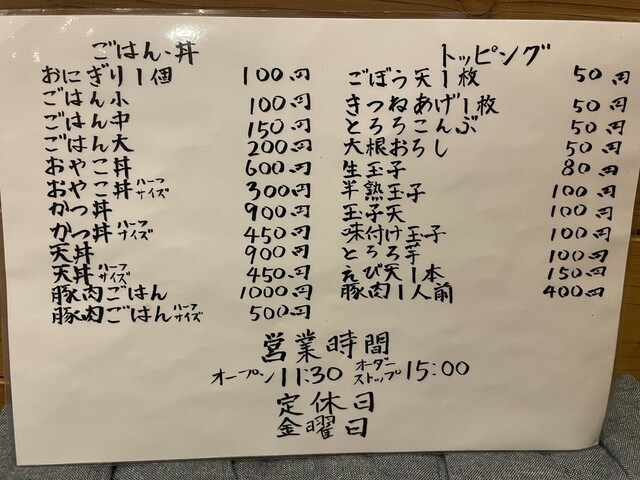 ごはん・丼
おにぎり1個 100円
ごはん小 100円
ごはん中 150円
ごはん大 200円
おやこ丼 600円
おやこ丼ハーフサイズ 300円
かつ丼 900円
かつ丼ハーフサイズ 450円
天丼 900円
天丼ハーフサイズ 450円
豚肉ごはん 1000円
豚肉ごはんハーフサイズ 500円
トッピング
ごぼう天1枚 50円
きつねあげ1枚 50円
とろろこんぶ 50円
大根おろし 50円
生玉子 80円
半熟玉子 100円
玉子天 100円
味付け玉子 100円
とろろ芋 100円
えび天1本 150円
豚肉1人前 400円
営業時間
オープン11:30 オーダーストップ15:00
定休日
金曜日